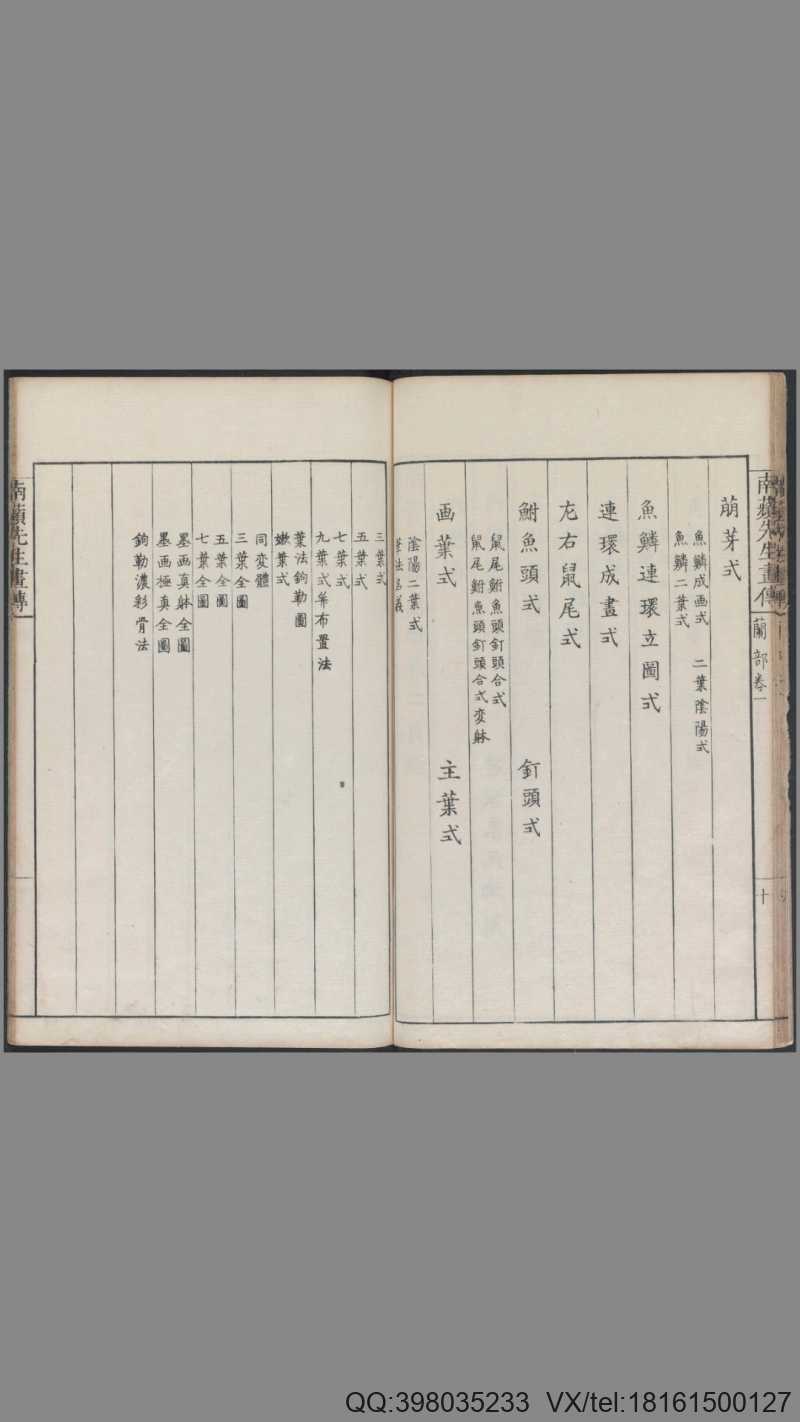 南蘋先生畫傳
蘭部卷一
十
萠芽式
魚鱗成画式　二葉陰陽式
魚鱗二葉式
魚鱗連環立圖式
連環成畫式
左右鼠尾式
鮒魚頭式　釘頭式
鼠尾鮒魚頭釘頭合式
鼠尾鮒魚頭釘頭合式変躰
画葉式　主葉式
陰陽二葉式
三葉式
五葉式
七葉式
九葉式并布置法
葉法鉤勒圖
嫩葉式
同変體
三葉全圖
五葉全圖
七葉全圖
墨画真躰全圖
墨画極真全圖
鉤勒濃彩骨法
南蘋先生畫傳
QQ:398035233 VX/tel:18161500127